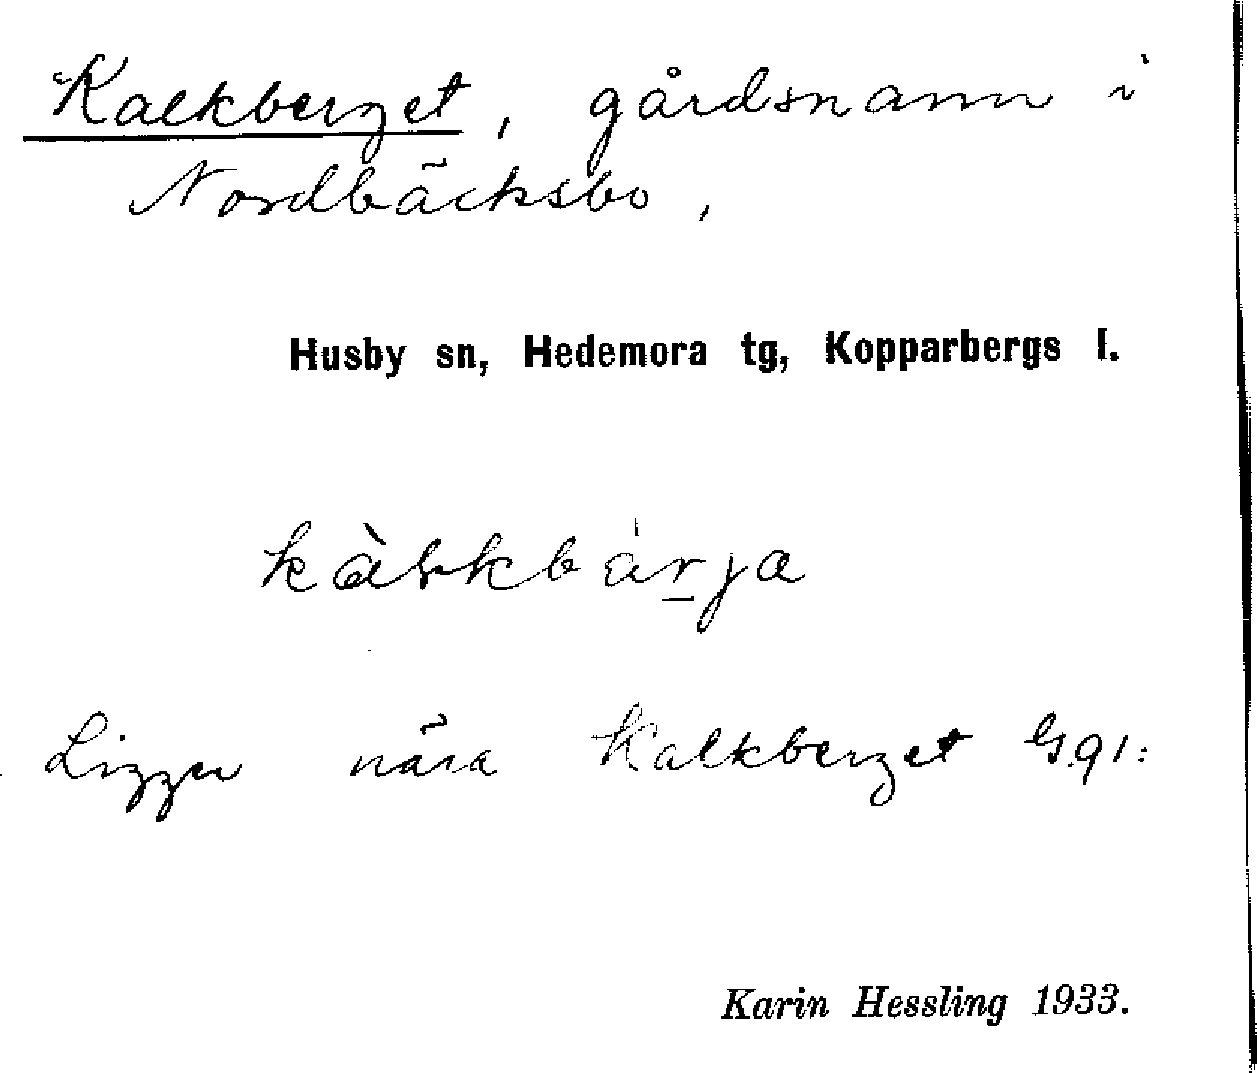 Kalkberget, gårdsnamn i
Nordbäcksbo,
Husby sn, Hedemora tg, Kopparbergs l.
Ligger nära Kalkberget G.91:
Karin Hessling 1933.